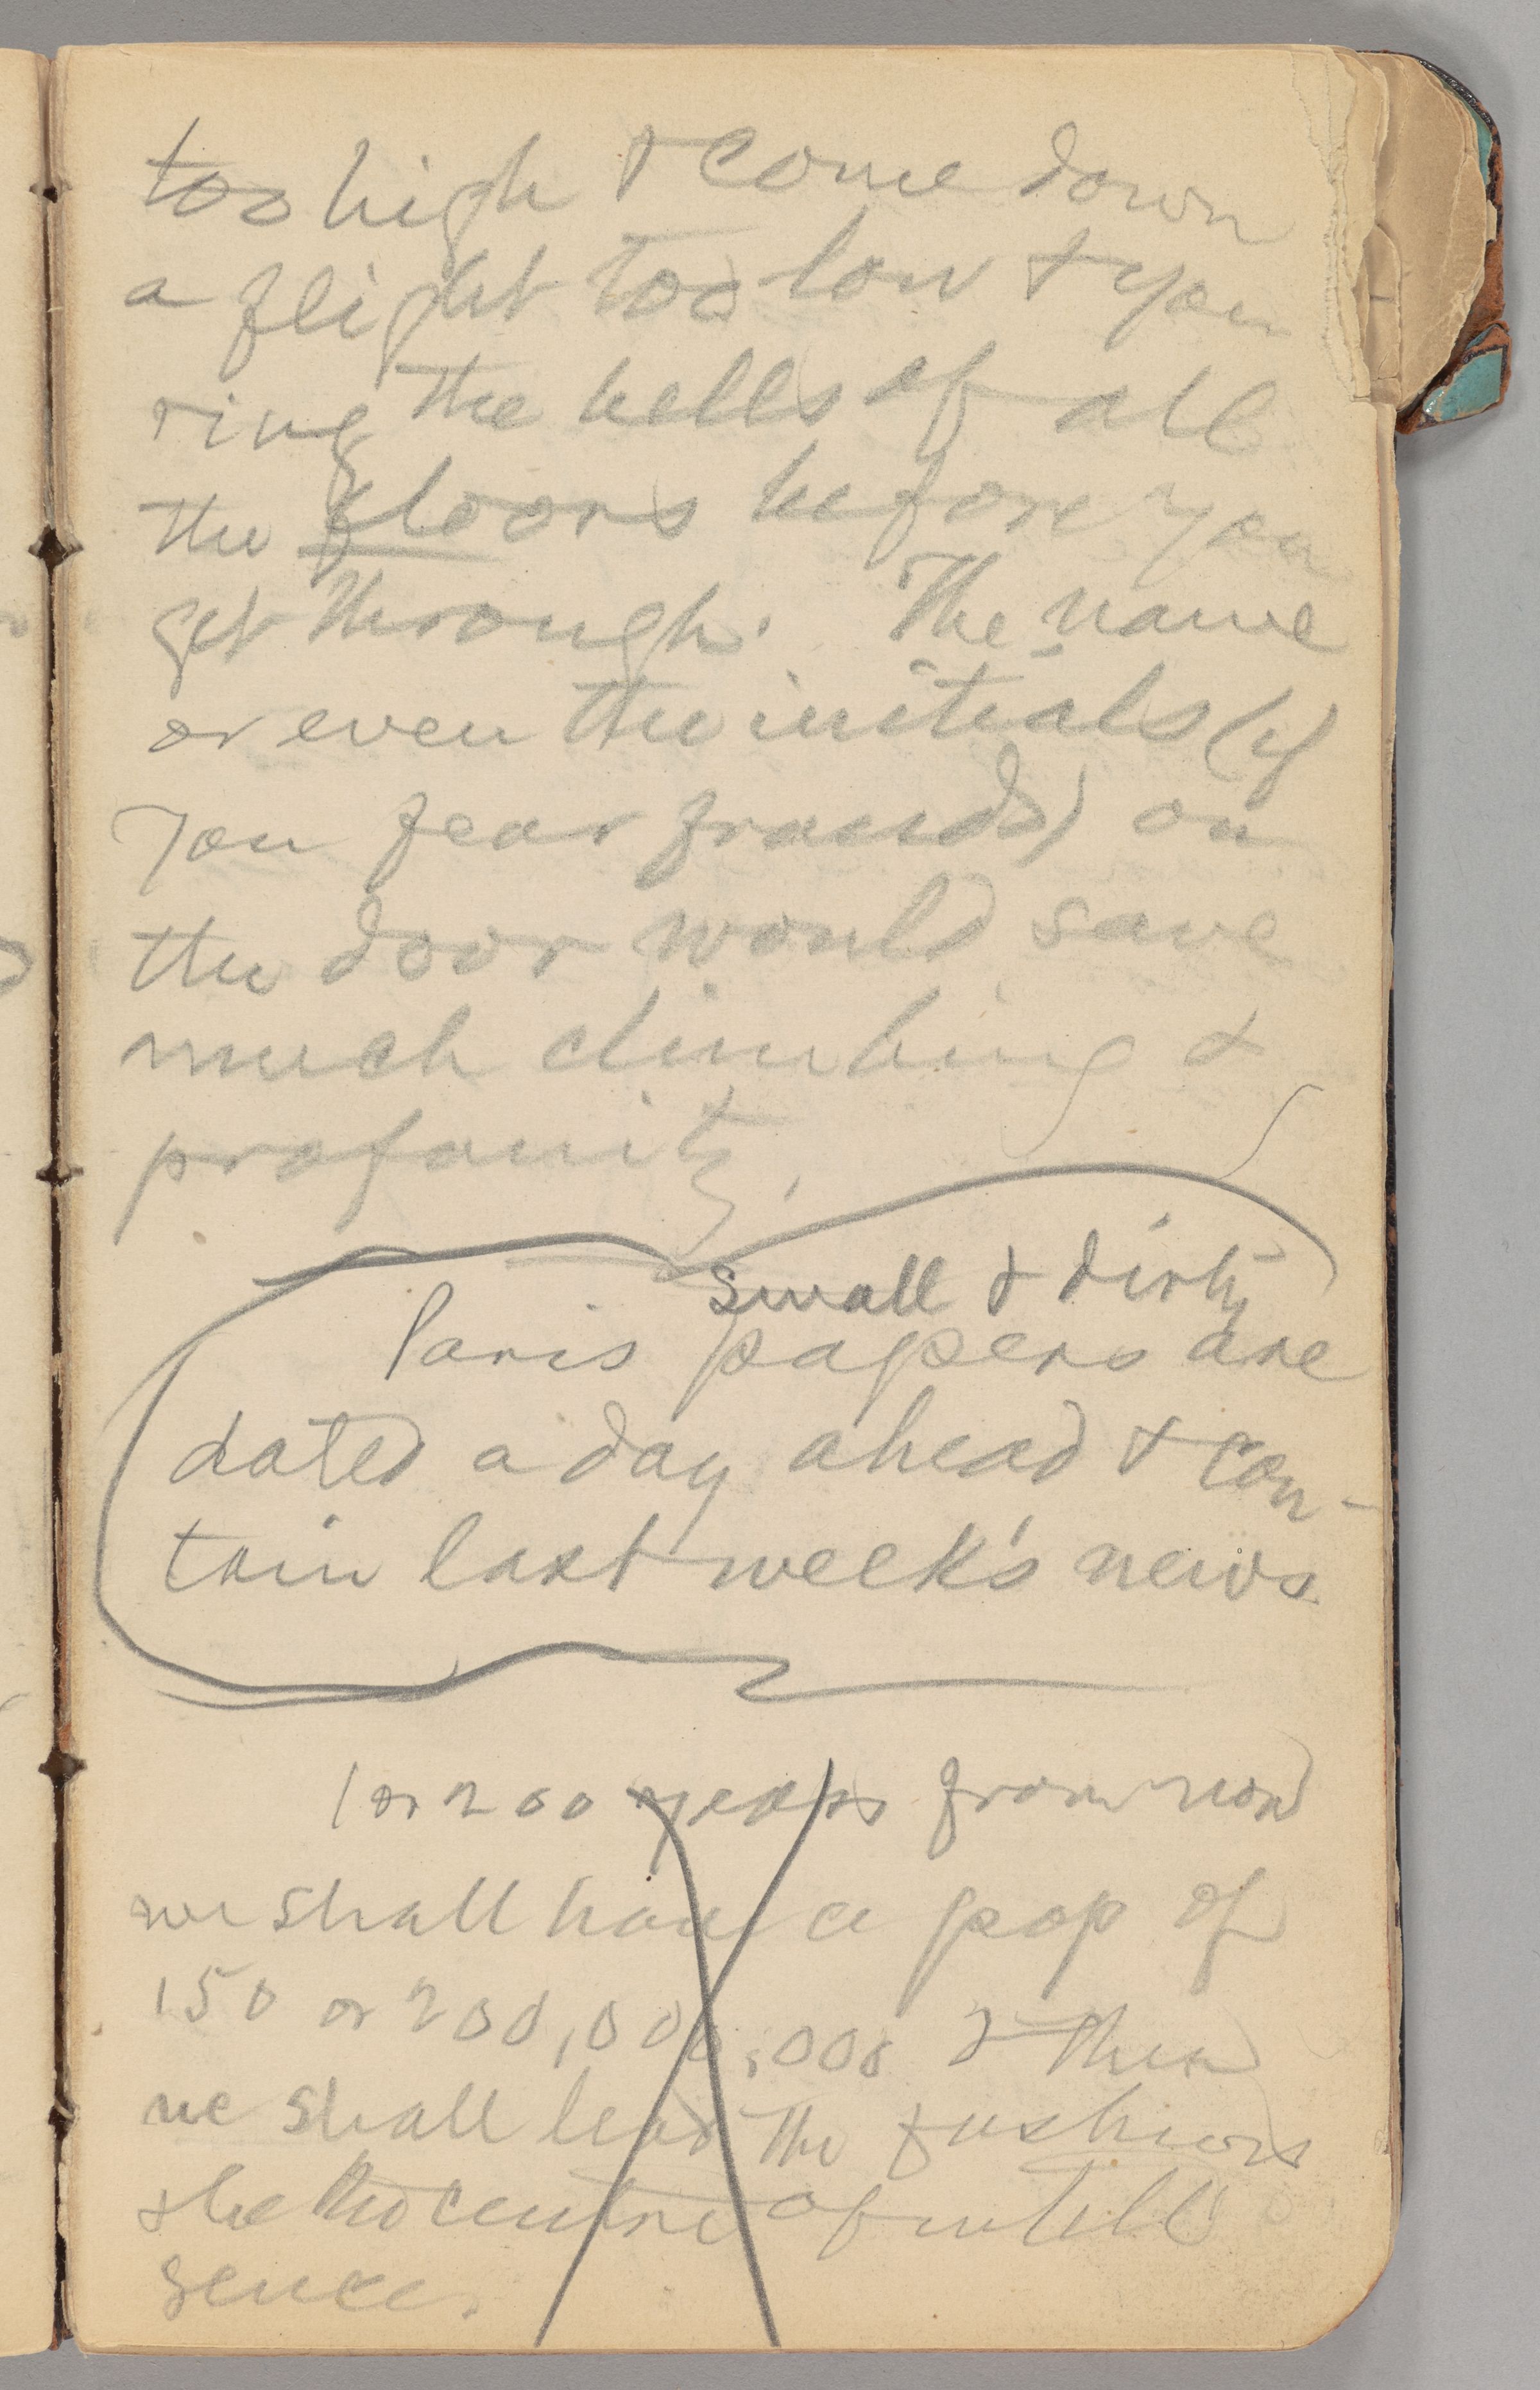 too high & come down
a flight too low & you
ring the bells of all
the floors before you
get through. The name
or even the initials (if
you fear frauds) on
the door would save
much climbing &
profanity.
small & dirty
Paris papers are
dated a day ahead & con-
tain last week's news
1 or 200 years from now
we shall have a pop of
150 or 200,000,000 & then
we shall lead the fashions
& be the centre of intelli
gence.